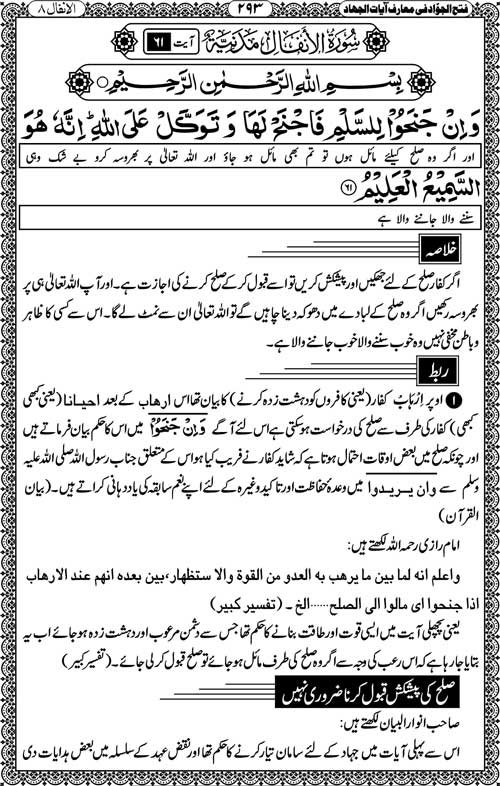 فتح الجوّاد فی معارف آیات الجهاد ۲۹۳ الانفال ۸
سُورَةُ الْأَنْفَالِ مَدَنِيَّةٌ آیت ۶۱
بِسْمِ اللهِ الرَّحْمٰنِ الرَّحِيْمِ
وَاِنْ جَنَحُوْا لِلسَّلْمِ فَاجْنَحْ لَهَا وَ تَوَكَّلْ عَلَى اللهِ ؕ اِنَّهٗ هُوَ
اور اگر وہ صلح کیلئے مائل ہوں تو تم بھی مائل ہو جاؤ اور اللہ تعالیٰ پر بھروسہ کرو بے شک وہی
السَّمِيْعُ الْعَلِيْمُ ﴿۶۱﴾
سننے والا جاننے والا ہے
خلاصہ
اگر کفار صلح کے لئے جھکیں اور پیشکش کریں تو اسے قبول کر کے صلح کرنے کی اجازت ہے۔ اور آپ اللہ تعالیٰ ہی پر
بھروسہ رکھیں اگر وہ صلح کے لبادے میں دھوکہ دینا چاہیں گے تو اللہ تعالیٰ ان سے نمٹ لے گا۔ اس سے کسی کا ظاہر
و باطن مخفی نہیں وہ خوب سننے والا خوب جاننے والا ہے۔
ربط
۱ اوپر اِرْہَابْ کفار (یعنی کافروں کو دہشت زدہ کرنے) کا بیان تھا اس ارهاب کے بعد احیانا (یعنی کبھی
کبھی) کفار کی طرف سے صلح کی درخواست ہو سکتی ہے اس لئے آگے وَاِنْ جَنَحُوْا میں اس کا حکم بیان فرماتے ہیں
اور چونکہ صلح میں بعض اوقات احتمال ہوتا ہے کہ شاید کفار نے فریب کیا ہو اس کے متعلق جناب رسول اللہ صلی اللہ علیہ
وسلم سے وان یریدوا میں وعدۂ حفاظت اور تاکید وغیرہ کے لئے اپنے نعم سابقہ کی یاد دہانی کراتے ہیں۔ (بیان
القرآن)
امام رازی رحمہ اللہ لکھتے ہیں:
واعلم انه لما بين ما يرهب به العدو من القوة والا ستظهار، بين بعده انهم عند الارهاب
اذا جنحوا ای مالوا الی الصلح......الخ۔ (تفسیر کبیر)
یعنی پچھلی آیت میں ایسی قوت اور طاقت بنانے کا حکم تھا جس سے دشمن مرعوب اور دہشت زدہ ہو جائے اب یہ
بتایا جا رہا ہے کہ اس رعب کی وجہ سے اگر وہ صلح کی طرف مائل ہو جائے تو صلح قبول کر لی جائے۔ (تفسیر کبیر)
صلح کی پیشکش قبول کرنا ضروری نہیں
صاحب انوار البیان لکھتے ہیں:
اس سے پہلی آیات میں جہاد کے لئے سامان تیار کرنے کا حکم تھا اور نقض عہد کے سلسلہ میں بعض ہدایات دی